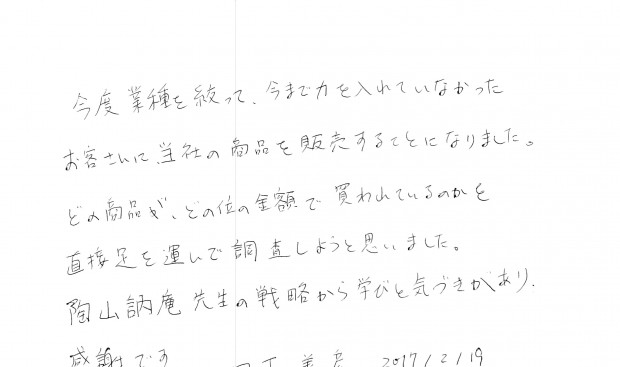 今度業種を絞って、今まで力を入れていなかった
お客さんに、当社の商品を販売することになりました。
どの商品が、どの位の金額で買われているのかを
直接足を運んで調査しようと思いました。
陶山訥庵先生の戦略から学びと気づきがあり、
感謝です 2017/2/19